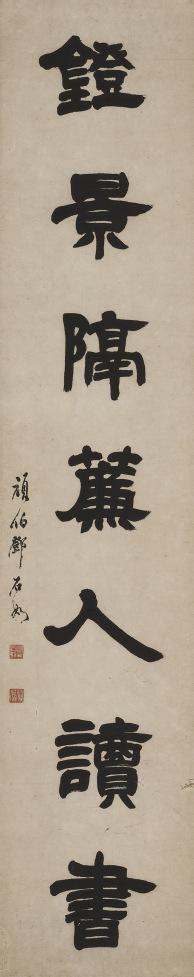 鐙景隔簾人讀書
頑伯鄧石如